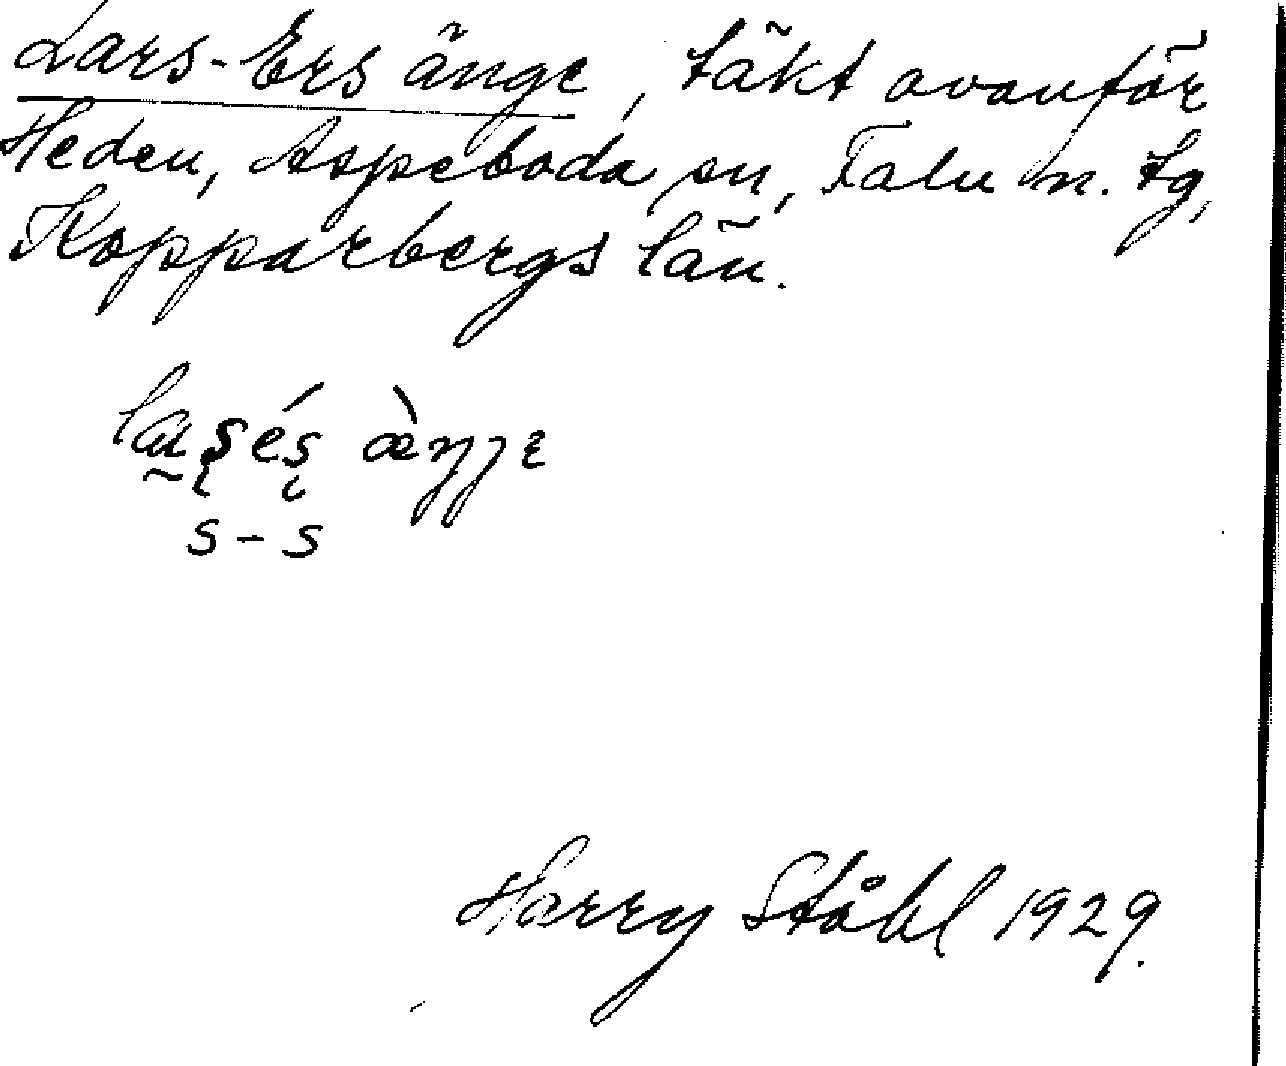 Lars-Ers änge, täkt ovanför
Heden, Aspeboda sn, Falu n. tg,
Kopparbergs län.
laṣéṣ æ̀ŋɟɛ
s - s
Harry Ståhl 1929.